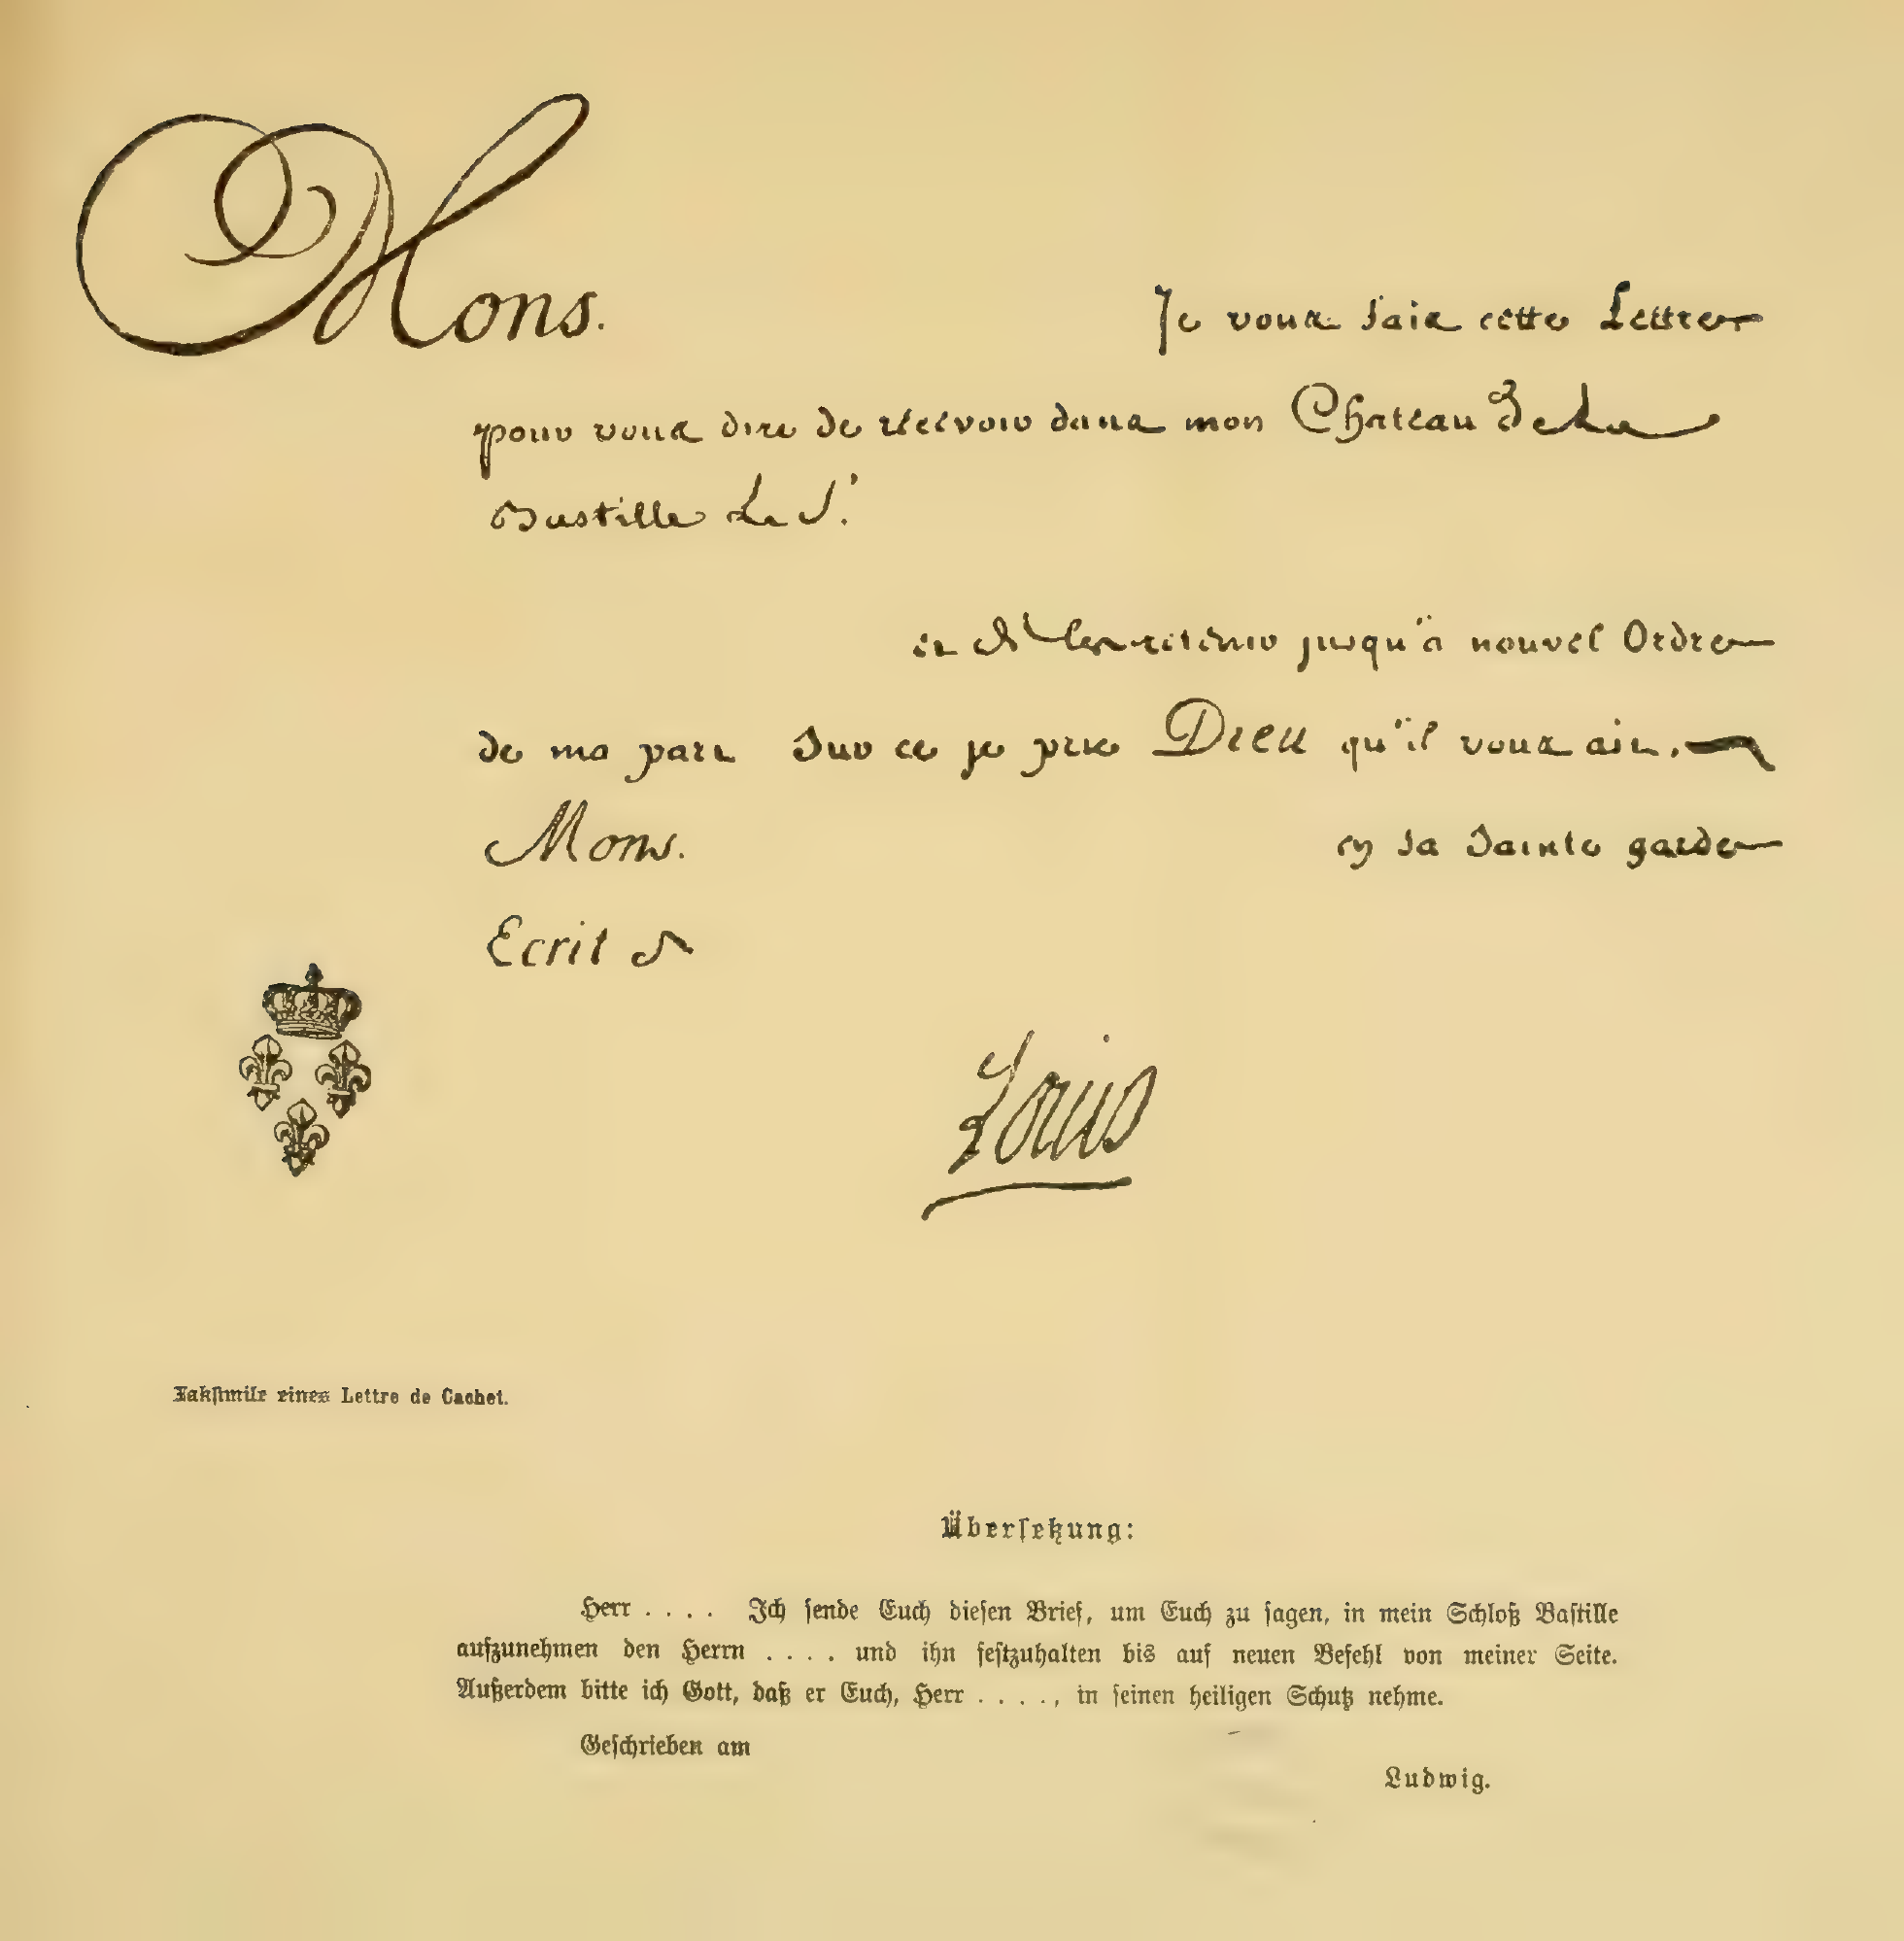 Mons. Je vous fais cette Lettre
pour vous dire de recevoir dans mon Chateau de la
Bastille Le S.r
et de l'y retenir jusqu'à nouvel Ordre
de ma part Sur ce je prie Dieu qu'il vous ait.
Mons. en sa Sainte garde
Ecrit a
Louis
Fakſimile eines Lettre de Cachet.
Überſetzung:
Herr . . . . Ich ſende Euch dieſen Brief, um Euch zu ſagen, in mein Schloß Baſtille
aufzunehmen den Herrn . . . . und ihn feſtzuhalten bis auf neuen Befehl von meiner Seite.
Außerdem bitte ich Gott, daß er Euch, Herr . . . ., in ſeinen heiligen Schutz nehme.
Geſchrieben am
Ludwig.